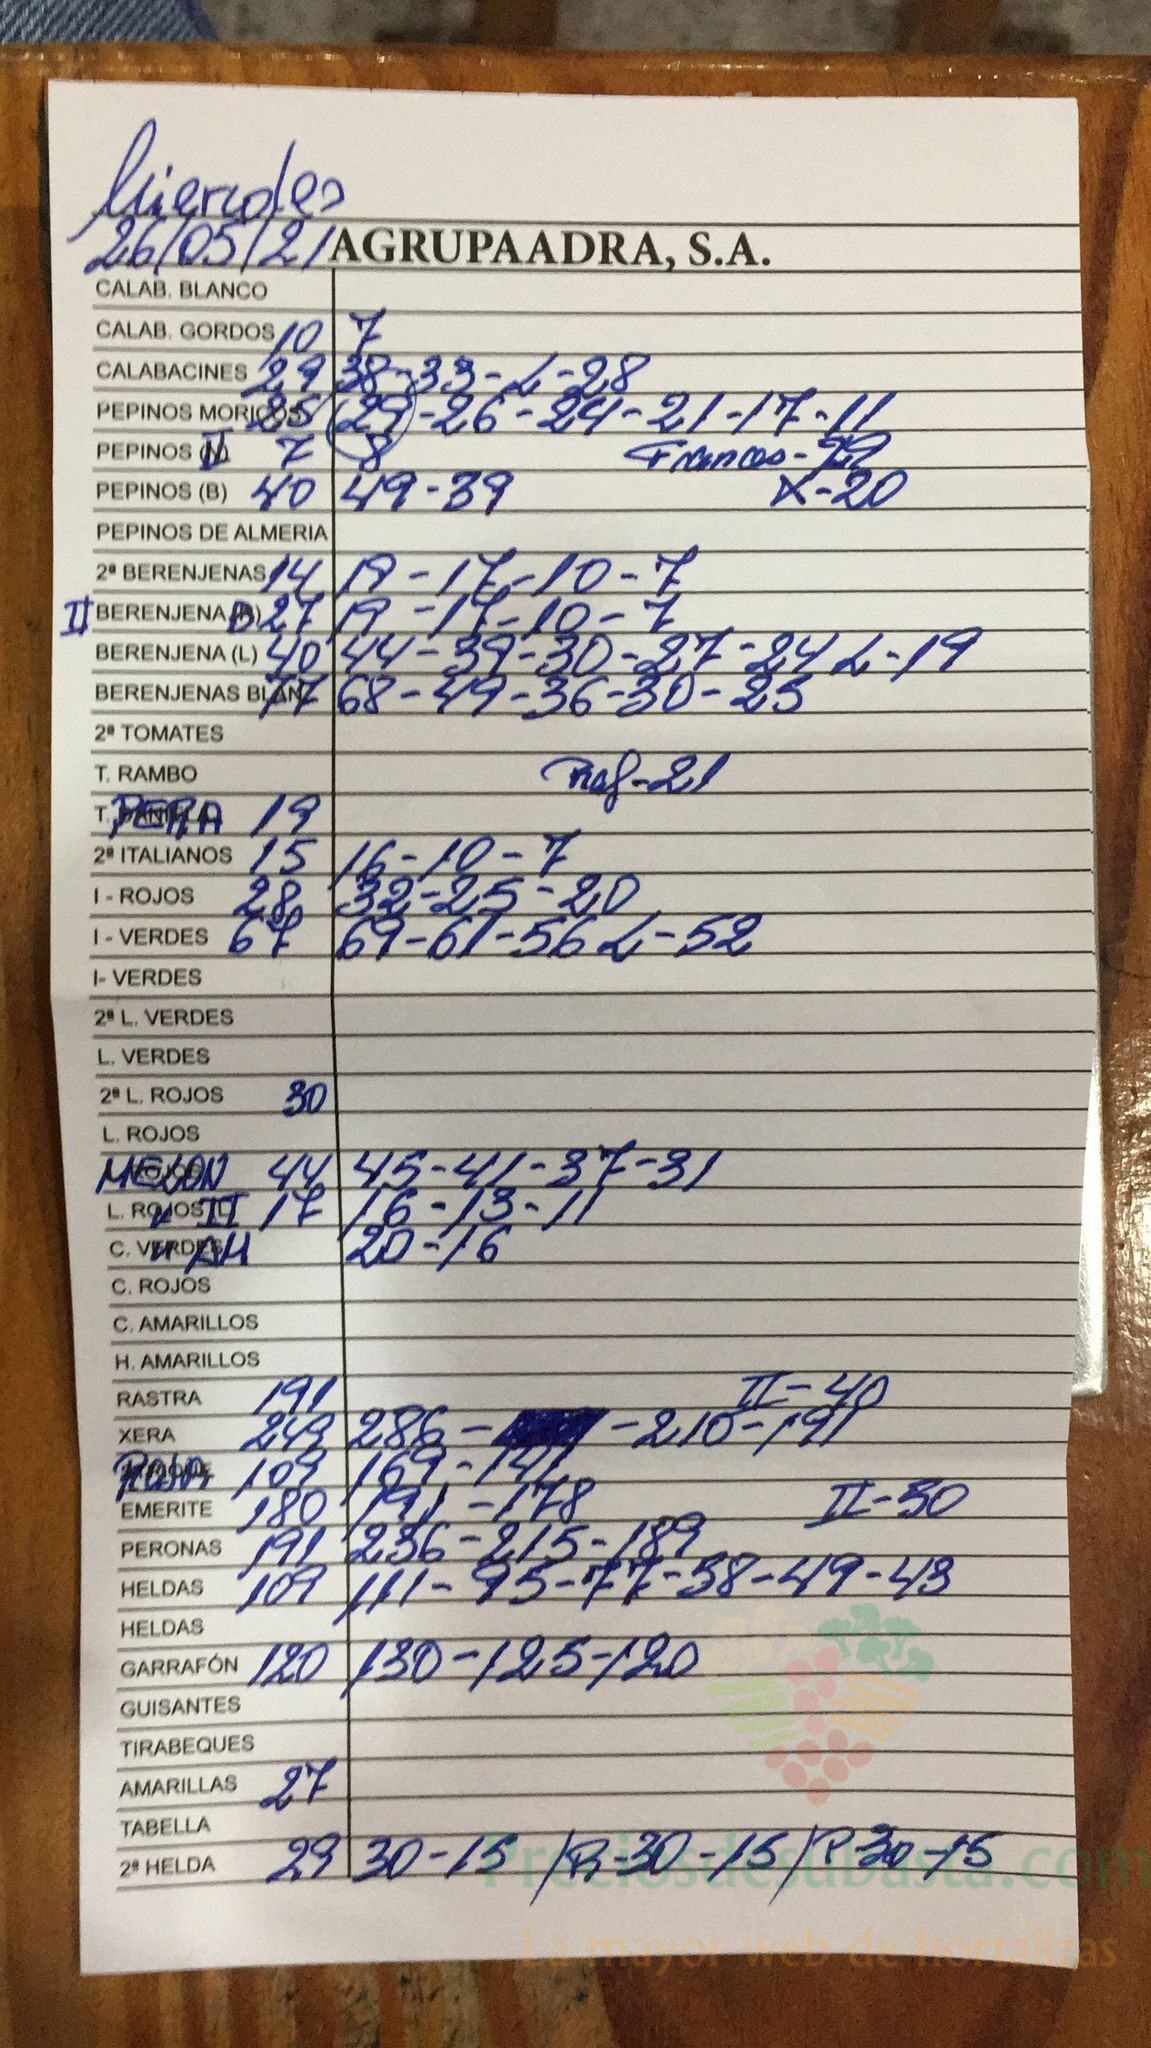 Miercoles
26/05/21 AGRUPAADRA, S.A.
CALAB. BLANCO
CALAB. GORDOS 10 7
CALABACINES 29 38-33-L-28
PEPINOS MORICOS 25 29-26-24-21-17-11
PEPINOS II 7 8 Frances-29
PEPINOS (B) 40 49-39 X-20
PEPINOS DE ALMERIA
2ª BERENJENAS 14 19-17-10-7
II BERENJENA B 27 19-17-10-7
BERENJENA (L) 40 44-39-30-27-24 L-19
BERENJENAS BLAN 77 68-49-36-30-25
2ª TOMATES
T. RAMBO -21
PERA 19
2ª ITALIANOS 15 16-10-7
I - ROJOS 28 32-25-20
I - VERDES 67 69-61-56 L-52
I- VERDES
2ª L. VERDES
L. VERDES
2ª L. ROJOS 30
L. ROJOS
MELON 44 45-41-37-31
L. ROJOS II 17 16-13-11
C. VERDES AM 20-16
C. ROJOS
C. AMARILLOS
H. AMARILLOS
RASTRA 191 II-40
XERA 249 286- -210-191
109 169-141
EMERITE 180 191-178 II-50
PERONAS 191 236-215-189
HELDAS 109 111-95-77-58-49-43
HELDAS
GARRAFÓN 120 130-125-120
GUISANTES
TIRABEQUES
AMARILLAS 27
TABELLA
2ª HELDA 29 30-15 /R-30-15/P30-15
Preciosdesubasta.com
La mayor web de hortalizas